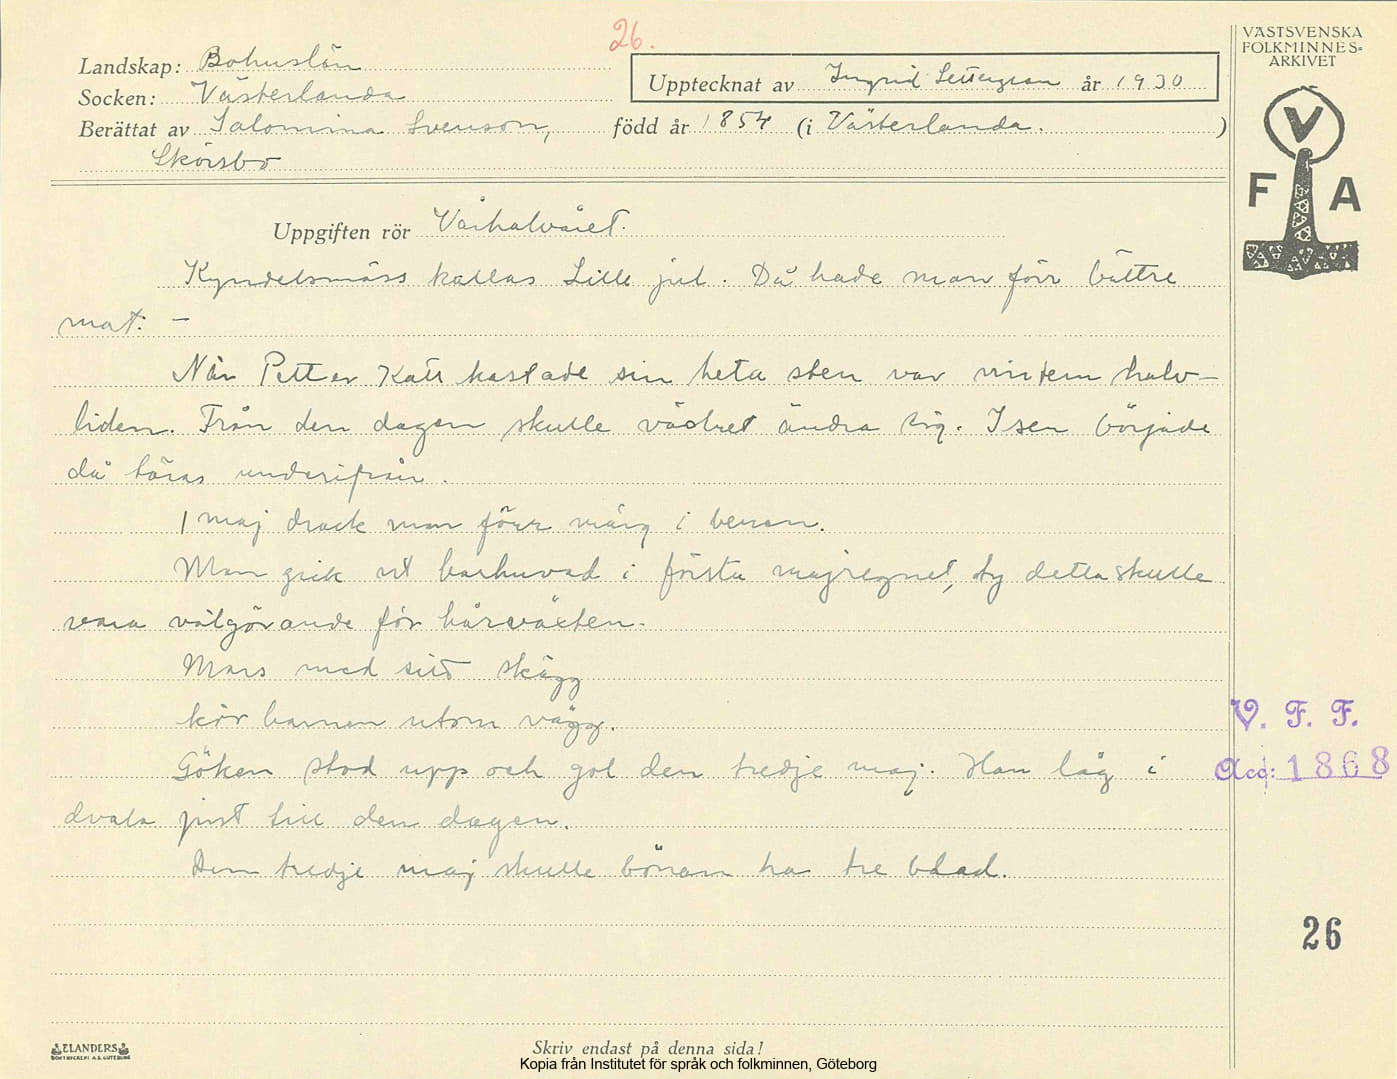 26.
Landskap: Bohuslän
Socken: Västerlanda
Upptecknat av Ingrid år 1930
Berättat av Salomina Svenson, född år 1854 (i Västerlanda.)
Skörsbo
VÄSTSVENSKA
FOLKMINNES=
ARKIVET
V
F A
Uppgiften rör Vårhalvåret.
Kyndelsmäss kallas Lille jul. Då hade man förr bättre
mat. —
När Petter Katt kastade sin heta sten var vintern halv-
liden. Från den dagen skulle vädret ändra sig. Isen började
då täras underifrån.
1 maj drack man förr märg i benen.
Man gick ut barhuvad i första majregnet, ty detta skulle
vara välgörande för hårväxten.
Mars med sitt skägg
kör barnen utom vägg.
Göken stod upp och gol den tredje maj. Han låg i
dvala just till den dagen.
Den tredje maj skulle bönan ha tre blad.
V. F. F.
Acc: 1868
26
ELANDERS
BOKTRYCKERI A.B. GÖTEBORG
Skriv endast på denna sida!
Kopia från Institutet för språk och folkminnen, Göteborg